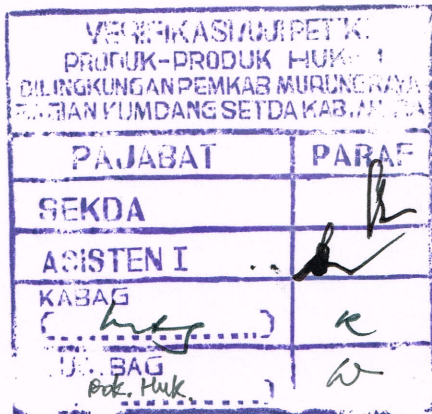 VERIFIKASI/UJI PETIK
PRODUK-PRODUK HUK
DILINGKUNGAN PEMKAB MURUNG RAYA
KUMDANG SETDA KAB.
PAJABAT PARAF
SEKDA
ASISTEN I
KABAG
BAG
Dok. Huk.